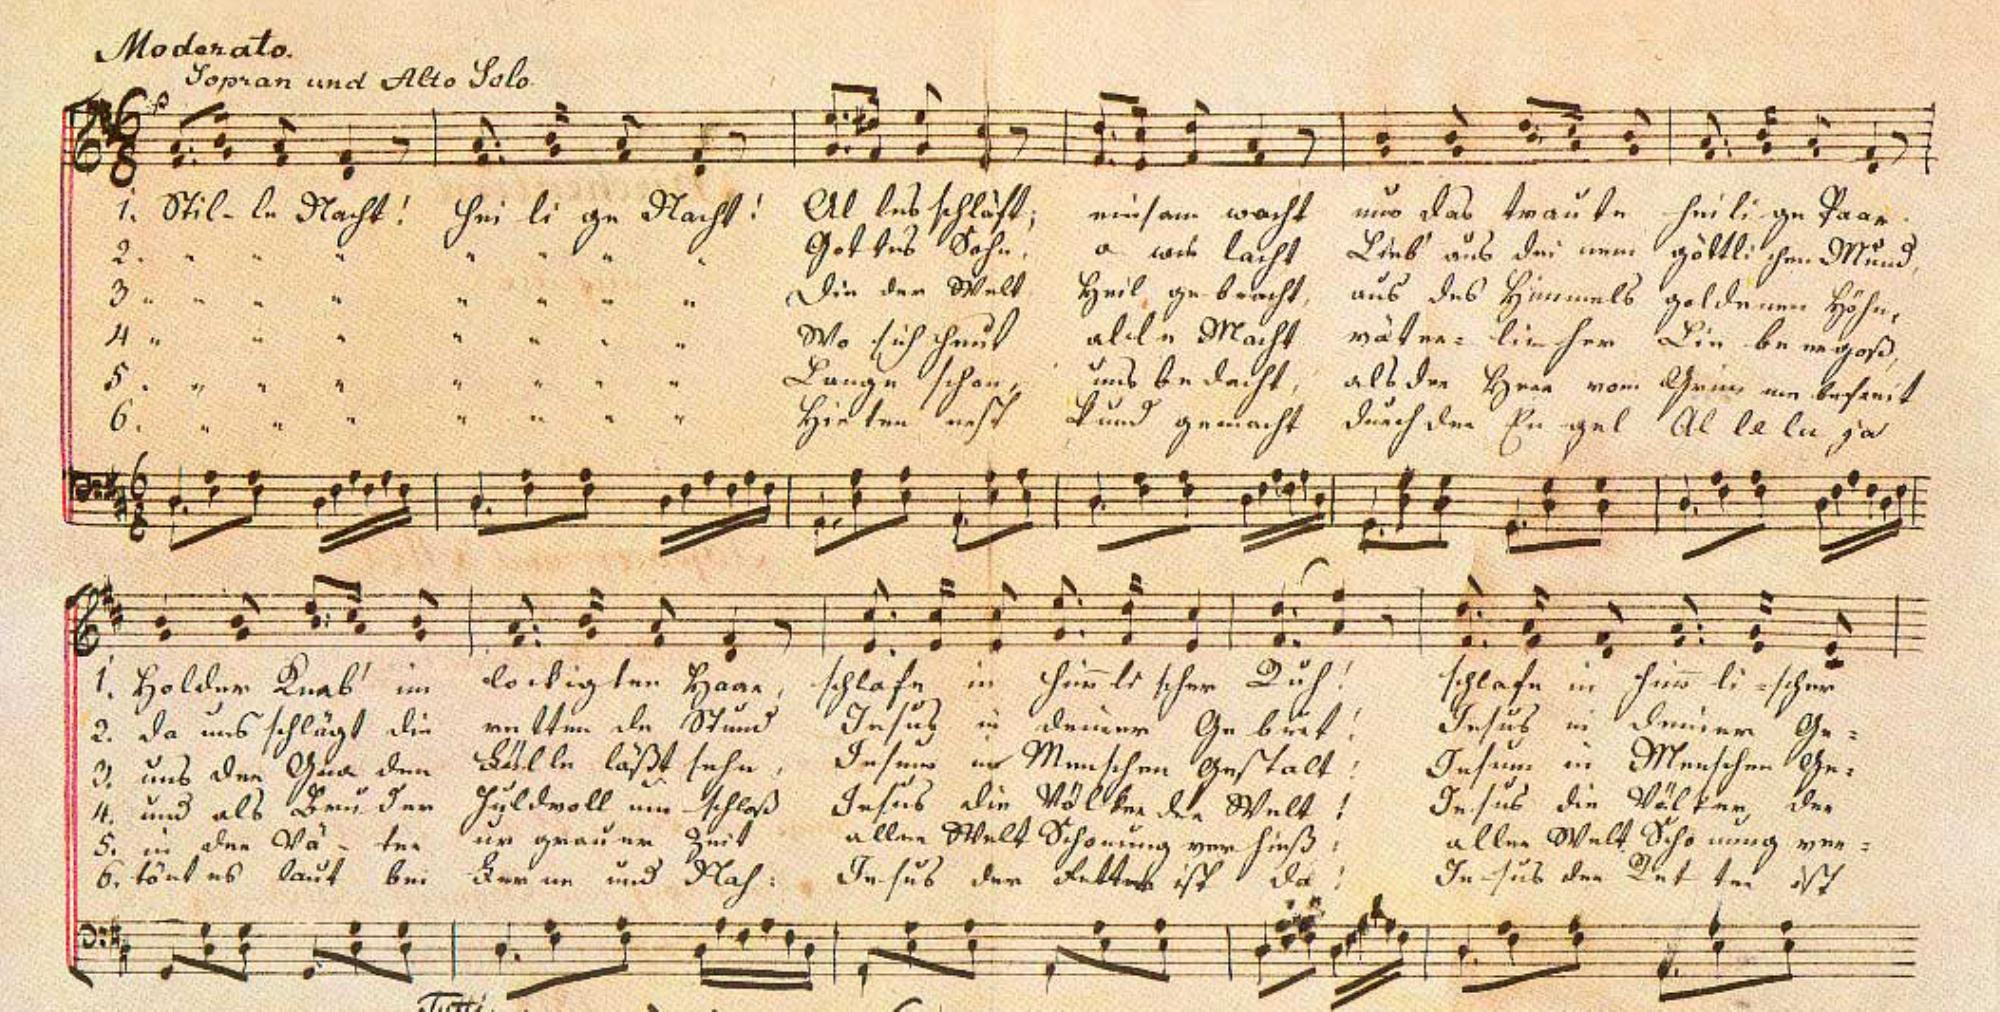 Moderato.
Sopran und Alto Solo
p
1. Stil-le Nacht! Hei li ge Nacht! Al les schläft; einsam wacht nur das traute heili ge Paar.
2. " " " " " " " Gottes Sohn, o wie lacht Lieb' aus dei nem göttli chen Mund,
3 " " " " " " " " Die der Welt Heil ge-bracht, aus des Himmels goldenen Höhn,
4 " " " " " " " Wo sich heut alle Macht väter= licher Lie be ergoß,
5. " " " " " " " Lange schon, uns bedacht, als der Herr vom Grim me befreit
6. " " " " " " " Hirten erst kund gemacht durch der En gel Al le lu ja
1. Holder Knab' im lockigten Haar, schlafe in him̅li scher Ruh! schlafe in him̅ li =scher
2. da uns schlägt die retten de Stund Jesus in deiner Ge burt! Jesus in deiner Ge=
3. uns der Gna den Fülle läßt sehn, Jesum in Menschen Gestalt! Jesum in Menschen Ge=
4. und als Bru der huldvoll um-schloß Jesus die Völker der Welt! Jesus die Völker der
5. in der Vä-ter ur grauer Zeit aller Welt Schonung ver hieß: aller Welt Scho nung ver=
6. tönt es laut bei Fer ne und Nah: Je-sus der Retter ist da! Je-sus der Ret ter ist
Tutti